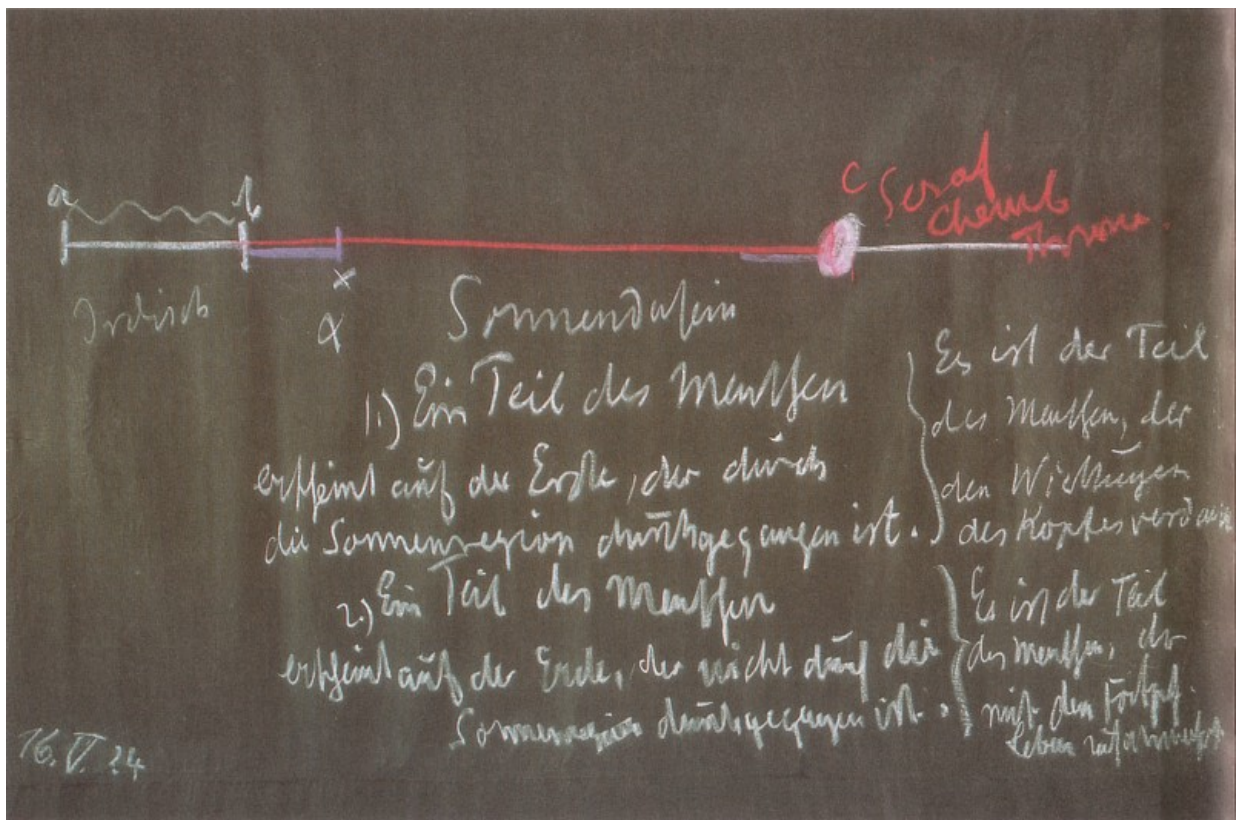 a b
C Seraf
Cherub
Throne.
x
Irdisch α Sonnendasein
1.) Ein Teil des Menschen
erscheint auf der Erde, der durch
die Sonnenregion durchgegangen ist.
Es ist der Teil
des Menschen, der
den Wirkungen
des Kopfes
2.) Ein Teil des Menschen
erscheint auf der Erde, der nicht durch die
Sonnenregion durchgegangen ist.
Es ist der Teil
des Menschen, der
mit dem Fortpf.
Leben
16.V.24